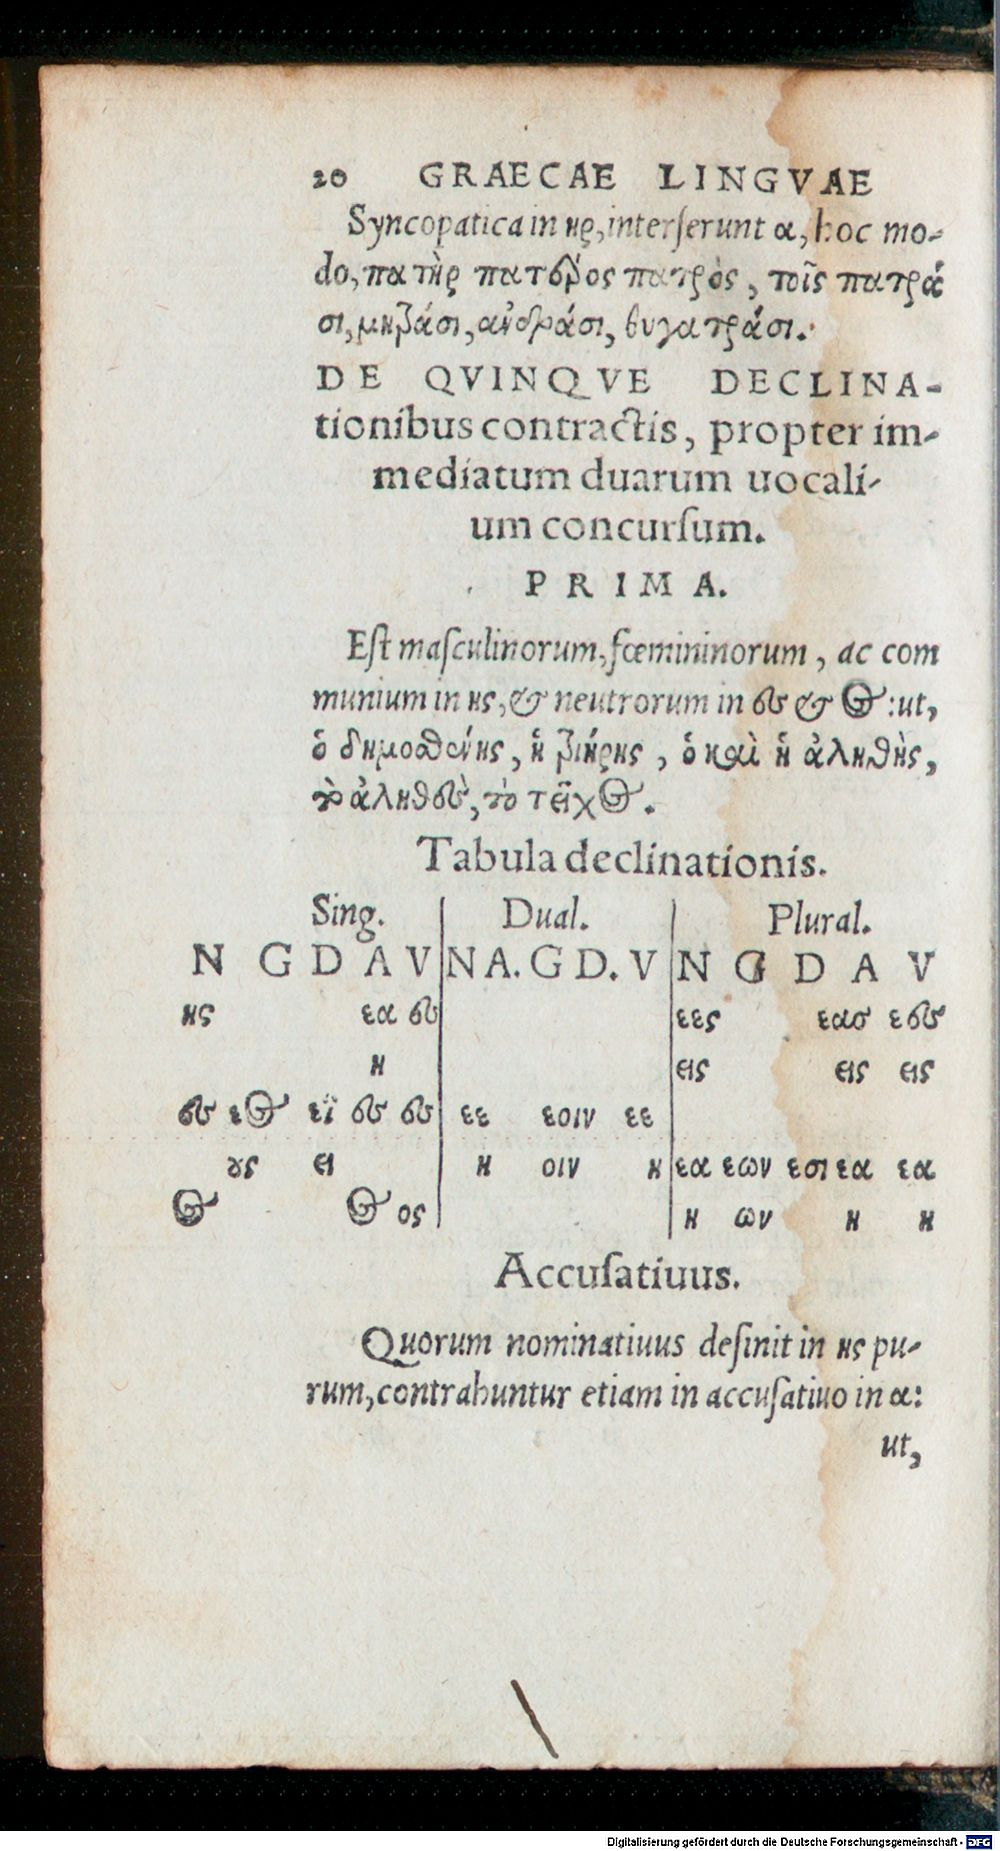 20 GRAECAE LINGVAE
Syncopatica in ηρ, interserunt α, hoc mo-
do, πατὴρ πατέρος πατρὸς, τοῖς πατρά
σι, μητράσι, ἀνδράσι, θυγατράσι.
DE QVINQVE DECLINA-
tionibus contractis, propter im-
mediatum duarum uocali-
um concursum.
PRIMA.
Est masculinorum, fœmininorum, ac com
munium in ης, & neutrorum in ες & ος: ut,
ὁ δημοσθένης, ἡ τριήρης, ὁ καὶ ἡ ἀληθὴς,
τὸ ἀληθὲς, τὸ τεῖχος.
Tabula declinationis.
Sing. Dual. Plural.
N G D A V N A. G D. V N G D A V
ης εα ες εες εας εες
η εις εις εις
ες εος εϊ ες ες εε εοιν εε
ους ει η οιν η εα εων εσι εα εα
ος ος ος η ων η η
Accusatiuus.
Quorum nominatiuus desinit in ης pu-
rum, contrahuntur etiam in accusatiuo in α:
ut,
Digitalisierung gefördert durch die Deutsche Forschungsgemeinschaft - DFG